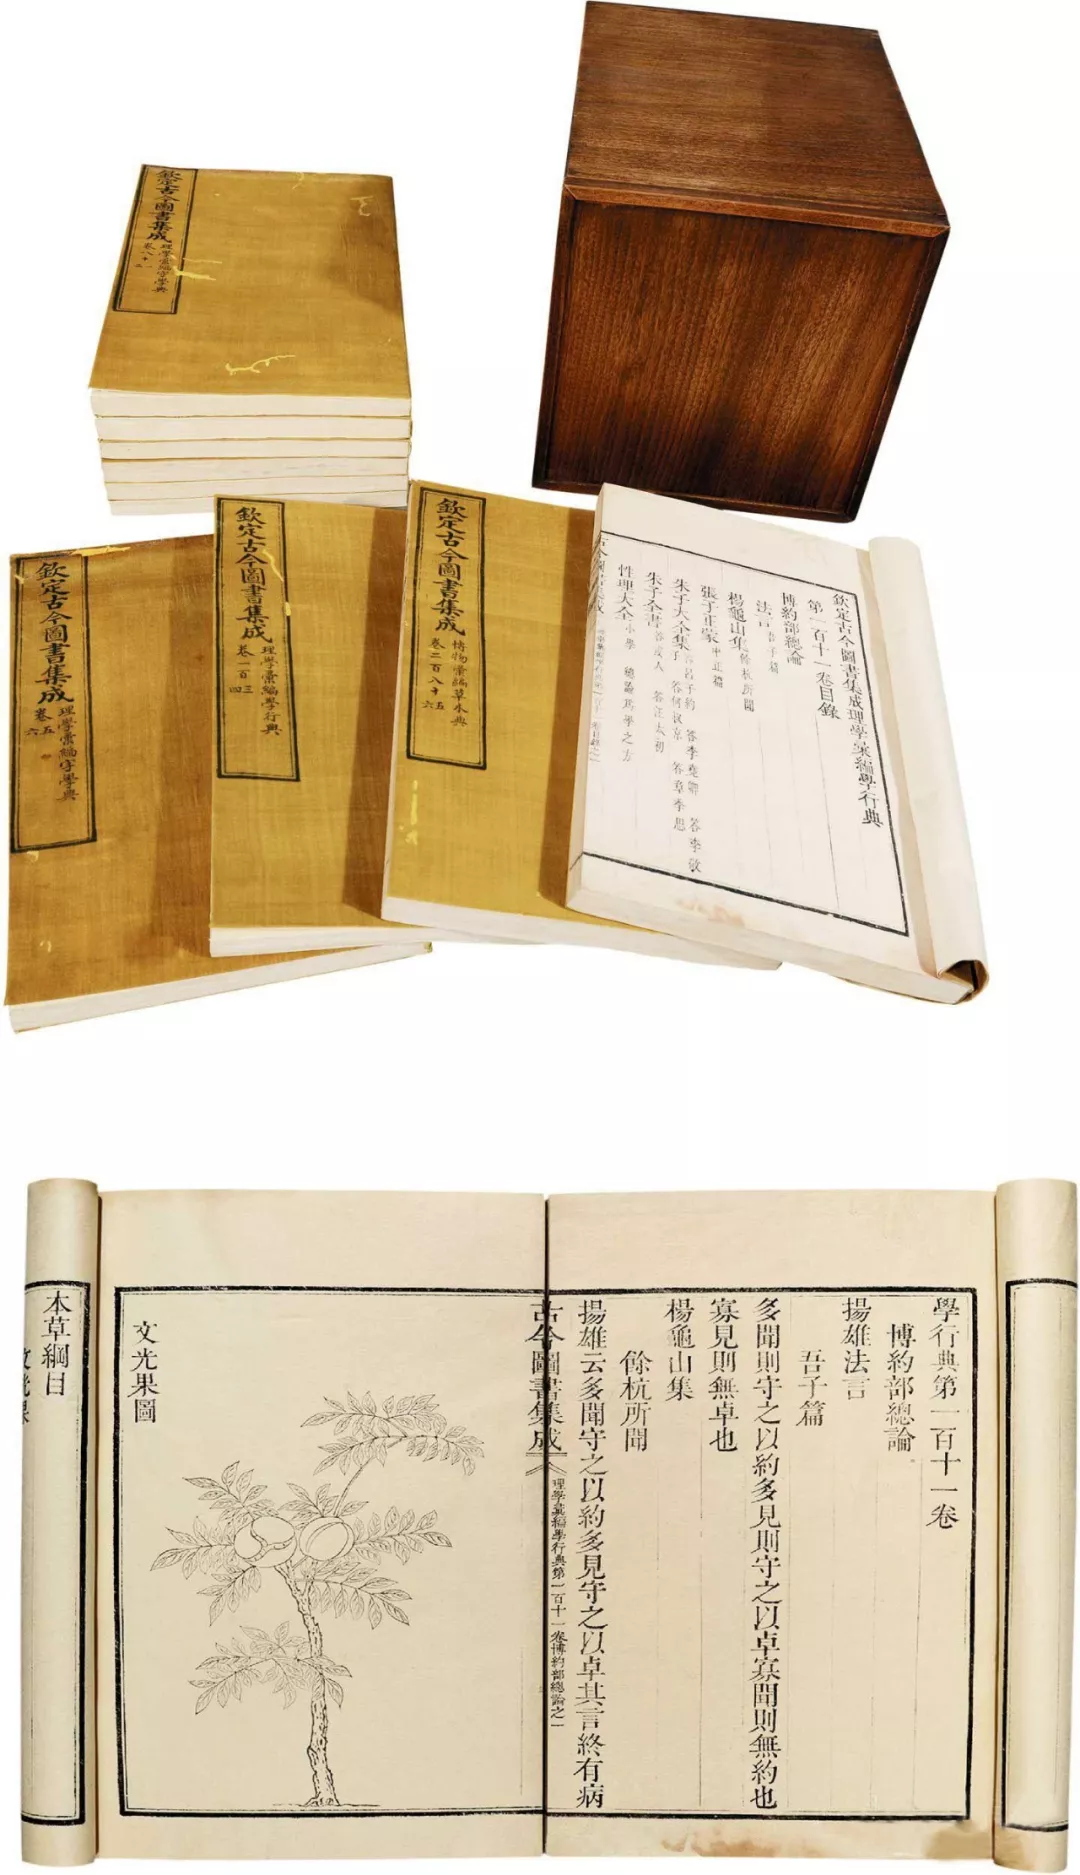 欽定古今圖書集成
理學彙編字學典
卷八十一
二
欽定古今圖書集成
理學彙編字學典
卷五
六
欽定古今圖書集成
理學彙編學行典
卷一百三
四
欽定古今圖書集成
博物彙編草木典
卷二百八十五
六
欽定古今圖書集成理學彙編學行典
第一百十一卷目錄
博約部總論
法言吾子篇
楊龜山集餘杭所聞
張子正蒙中正篇
朱子大全集答呂子約 答李堯卿 答李敬子 答何叔京 答章季思
朱子全書答或人 答汪太初
性理大全小學 總論為學之方
古今圖書集成
學行典第一百十一卷
博約部總論
揚雄法言
吾子篇
多聞則守之以約多見則守之以卓寡聞則無約也
寡見則無卓也
楊龜山集
餘杭所聞
揚雄云多聞守之以約多見守之以卓其言終有病
古今圖書集成
理學彙編學行典第一百十一卷博約部總論之一
文光果圖
本草綱目